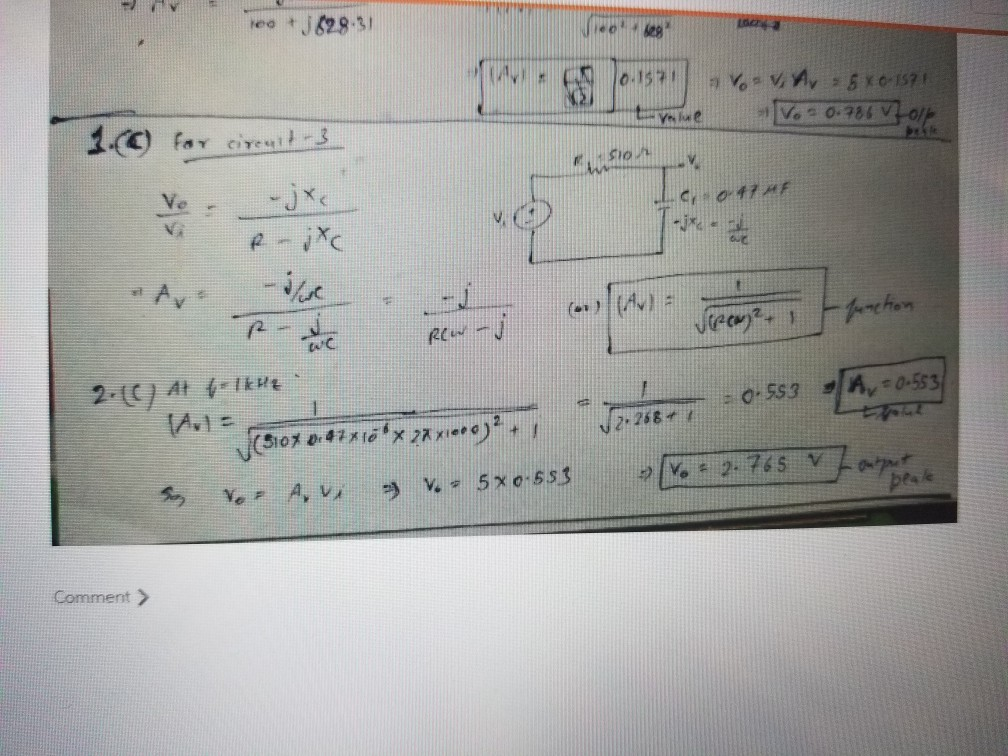 100 + j628.31
√100² + 628²
|Av| = 0.1571
⇒ Vo = Vi Av = 5 x 0.1571
value
⇒ Vo = 0.786 V o/p
peak
1.(C) For circuit-3
R = 510Ω Vo
Vo/Vi = -jXc / R - jXC
Vi
C1 = 0.47 MF
-jXc = -j/ωc
⇒ Av = -j/ωc / R - j/ωc = -j / RCω - j
(or) |Av| = 1/√(RCω)² + 1 function
2.(C) At f=1kHz
|Av| = 1/√(510 x 0.47x10⁻⁶ x 2π x1000)² + 1 = 1/√2.268 + 1 = 0.553 ⇒ Av = 0.553
value
So, Vo = Av Vi ⇒ Vo = 5x0.553 ⇒ Vo = 2.765 V output
peak
Comment >